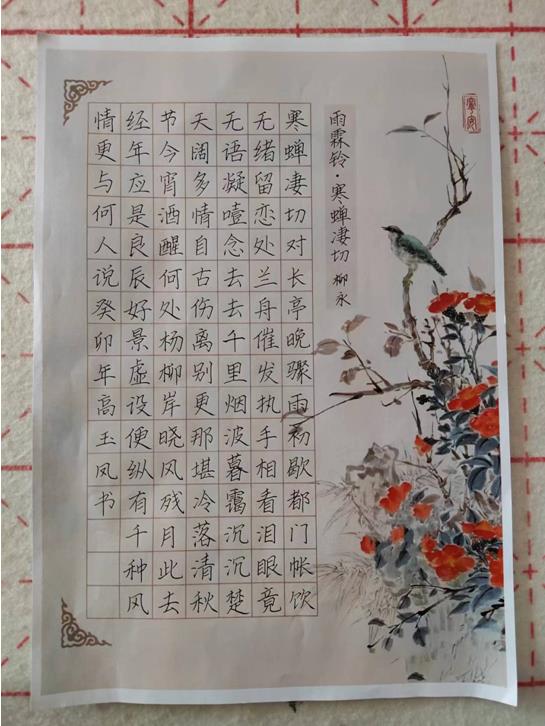 雨霖铃·寒蝉凄切 柳永
寒蝉凄切对长亭晚骤雨初歇都门帐饮
无绪留恋处兰舟催发执手相看泪眼竟
无语凝噎念去去千里烟波暮霭沉沉楚
天阔多情自古伤离别更那堪冷落清秋
节今宵酒醒何处杨柳岸晓风残月此去
经年应是良辰好景虚设便纵有千种风
情更与何人说癸卯年高玉凤书